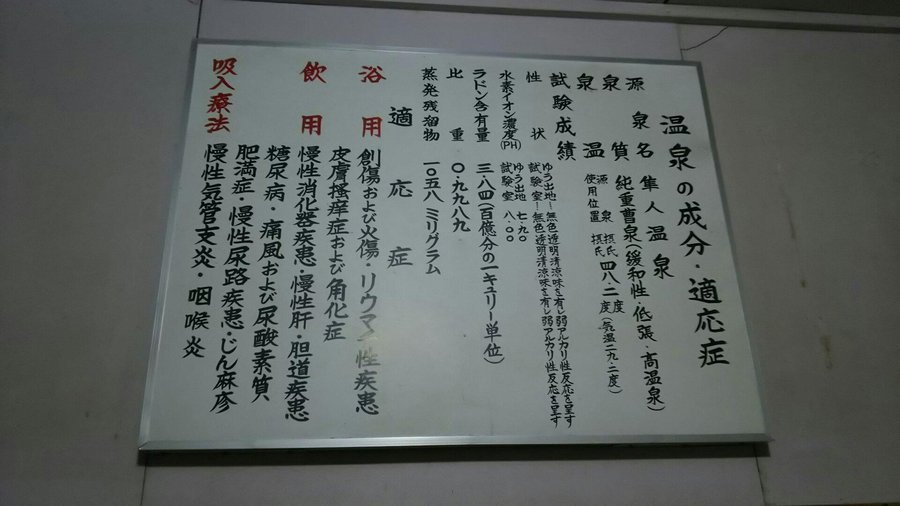 温泉の成分・適応症
源泉名 隼人温泉
泉質 純重曹泉(緩和性・低張・高温泉)
泉温 源泉 摂氏 四八・二度
使用位置 摂氏 度(気温二九・二度)
試験成績
性状 ゆう出地―無色透明清涼味を有し弱アルカリ性反応を呈す
試験室―無色透明清涼味を有し弱アルカリ性反応を呈す
水素イオン濃度(PH) ゆう出地 七・九〇
試験室 八・〇〇
ラドン含有量 三・八四(百億分の一キュリー単位)
比重 〇・九九八九
蒸発残留物 一〇五八ミリグラム
適応症
浴用 創傷および火傷・リウマチ性疾患
皮膚掻痒症および角化症
飲用 慢性消化器疾患・慢性肝・胆道疾患
糖尿病・痛風および尿酸素質
肥満症・慢性尿路疾患・じん麻疹
吸入療法 慢性気管支炎・咽喉炎